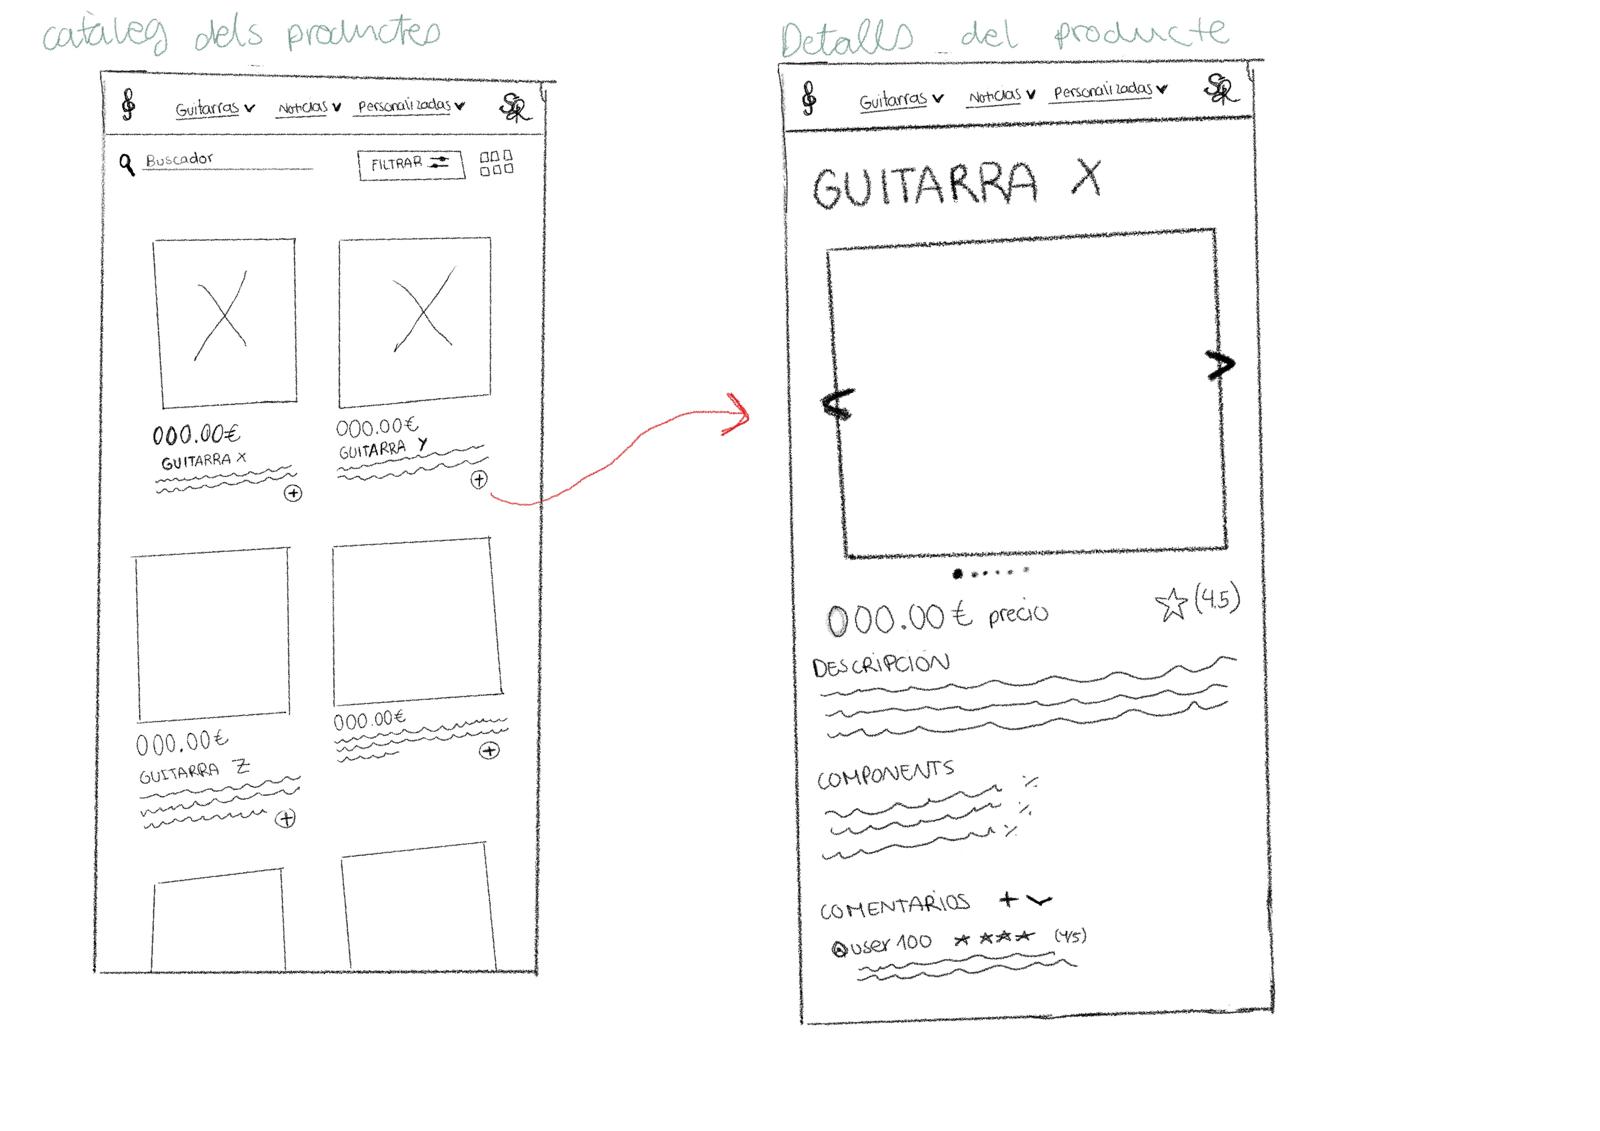 catàleg dels productes
Guitarras Noticias Personalizadas SR
Buscador FILTRAR
000.00€
GUITARRA X
000.00€
GUITARRA Y
000.00€
GUITARRA Z
000.00€
Detalls del producte
Guitarras Noticias Personalizadas SR
GUITARRA X
000.00€ precio (4.5)
DESCRIPCIÓN
COMPONENTS
%
%
%
COMENTARIOS +
user 100 (4/5)